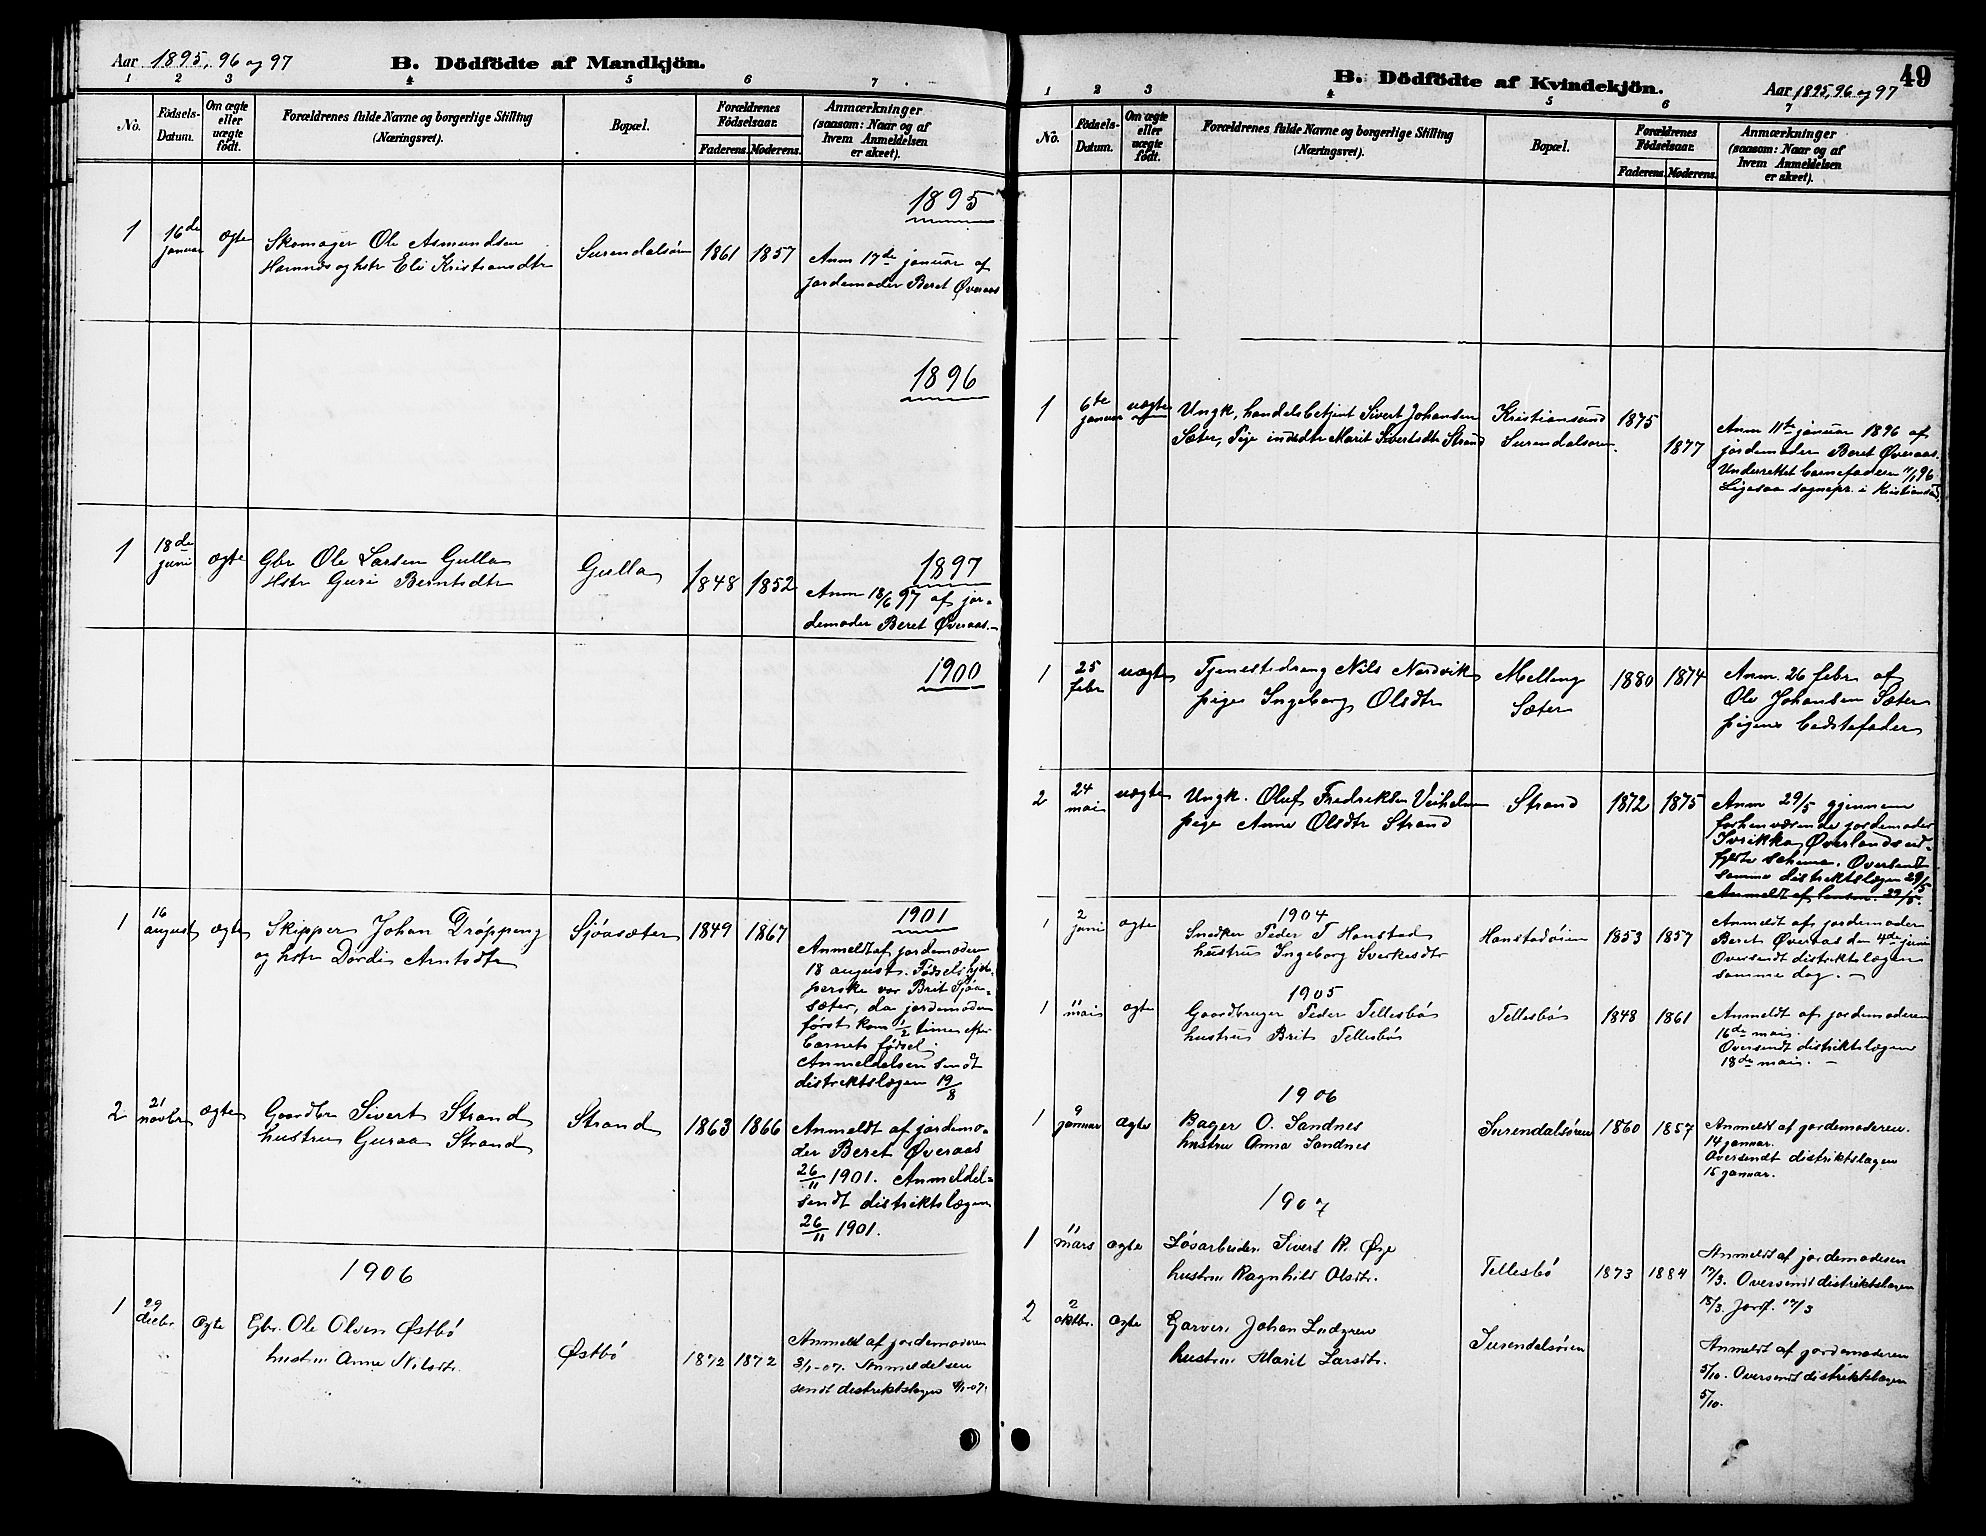 Aar 1895, 96 og 97
B. Dödfödte af Mandkjön.
1 2 3 4 5 6 7
No.
Födsels-
Datum.
Om ægte
eller
uægte
födt.
Forældrenes fulde Navne og borgerlige Stilling
(Næringsvei).
Bopæl.
Forældrenes
Födselsaar.
Faderens. Moderens.
Anmærkninger
(saasom: Naar og af
hvem Anmeldelsen
er skeet).
1895
1
16de
januar
ægte
Skomager Ole Asmundsen
Hamnes og hstr Eli Kristiansdtr
Surendalsøren
1861 1857
Anm 17de januar af
jordemoder Beret Øveraas
1896
1897
1
18de
juni
ægte
Gbr Ole Larsen Gulla
Hstr Guri Berntsdtr
Gulla
1848 1852
Anm 18/6 97 af jor-
demoder Beret Øveraas.
1900
1901
1
16
august
ægte
Skipper Johan Drøpping
og hstr Dordi Arntsdtr
Sjøasæter
1849 1867
Anmeldt af jordemoderen
18 august. Fødselshjæl-
perske var Brit Sjøa-
sæter, da jordemoderen
først kom 1/2 time efter
barnets fødsel.
Anmeldelsen sendt
distriktslægen 19/8
2
21
novbr
ægte
Gaardbr Sivert Strand
hustru Guraa Strand
Strand
1863 1866
Anmeldt af jordemo-
der Beret Øveraas
26/11 1901. Anmeldel-
sendt distriktslægen
26/11 1901.
1906
1
29
decbr
ægte
Gbr. Ole Olsen Østbø
hustru Anne Nilsdtr.
Østbø
1872 1872
Anmeldt af jordemoderen
3/1-07. Anmeldelsen
sendt distriktslægen 4/1-07.
49
B. Dödfödte af Kvindekjön.
Aar 1895, 96 og 97
1 2 3 4 5 6 7
No.
Födsels-
Datum.
Om ægte
eller
uægte
födt.
Forældrenes fulde Navne og borgerlige Stilling
(Næringsvei).
Bopæl.
Forældrenes
Födselsaar.
Faderens. Moderens.
Anmærkninger
(saasom: Naar og af
hvem Anmeldelsen
er skeet).
1
6te
januar
uægte
Ungk, handelsbetjent Sivert Johansen
Sæter, Pige indsdtr Marit Sivertsdtr Strand
Kristiansund
Surendalsøren.
1875
1877
Anm 11te januar 1896 af
jordemoder Beret Øveraas.
Underrettet barnefaderen 11/1 96
Ligesaa sognepr. i Kristiansund.
1
25
febr
uægte
Tjenestedreng Nils Nordvik
pige Ingeborg Olsdtr
Melleng
Sæter
1880 1874
Anm. 26 febr af
Ole Johansen Sæter
pigens bedstefader
2
24
mai
uægte
Ungk. Oluf Fredriksen
pige Anne Olsdtr Strand
Strand
1872 1875
Anm 29/5 gjennem
forhenværende jordemoder
Øverlands ud-
fyldte schema. Oversendt
samme distriktslægen 29/5
Anmeldt af 29/5.
1904
1
2
juni
ægte
Snedker Peder T Hanstad
hustru Ingeborg Sverkesdtr
Hanstadøien
1853 1857
Anmeldt af jordemoder
Beret Øveraas den 4de juni
Oversendt distriktslægen
samme dag. —
1905
1
11
mai
ægte
Gaardbruger Peder Tellesbø
hustru Brit Tellesbø
Tellesbø
1848 1861
Anmeldt af jordemoderen
16de mai.
Oversendt distriktslægen
18de mai. —
1906
1
9
januar
ægte
Bager O. Sandnes
hustru Anna Sandnes
Surendalsøren
1860 1857
Anmeldt af jordemoderen.
14 januar.
Oversendt distriktslægen
15 januar.
1907
1
11
mars
ægte
Løsarbeider Sivert R. Øye
hustru Ragnhild Olsdtr.
Tellesbø
1873 1884
Anmeldt af jordemoderen
17/3. Oversendt distriktslægen
18/3. Jordf. 17/3
2
2
oktbr.
ægte
Garver Johan Lndgren
hustru Marit Larsdtr.
Surendalsøren
Anmeldt af jordemoderen
5/10. Oversendt distriktslægen
5/10.